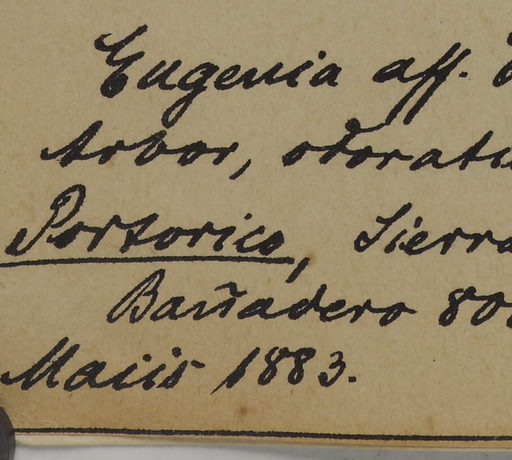 Eugenia aff.
Arbor, odorati
Portorico, Sierra
Bañadero 80
Maiis 1883.